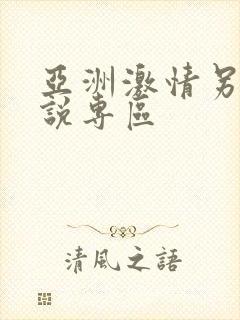 亞洲激情另
說專區
清風之語